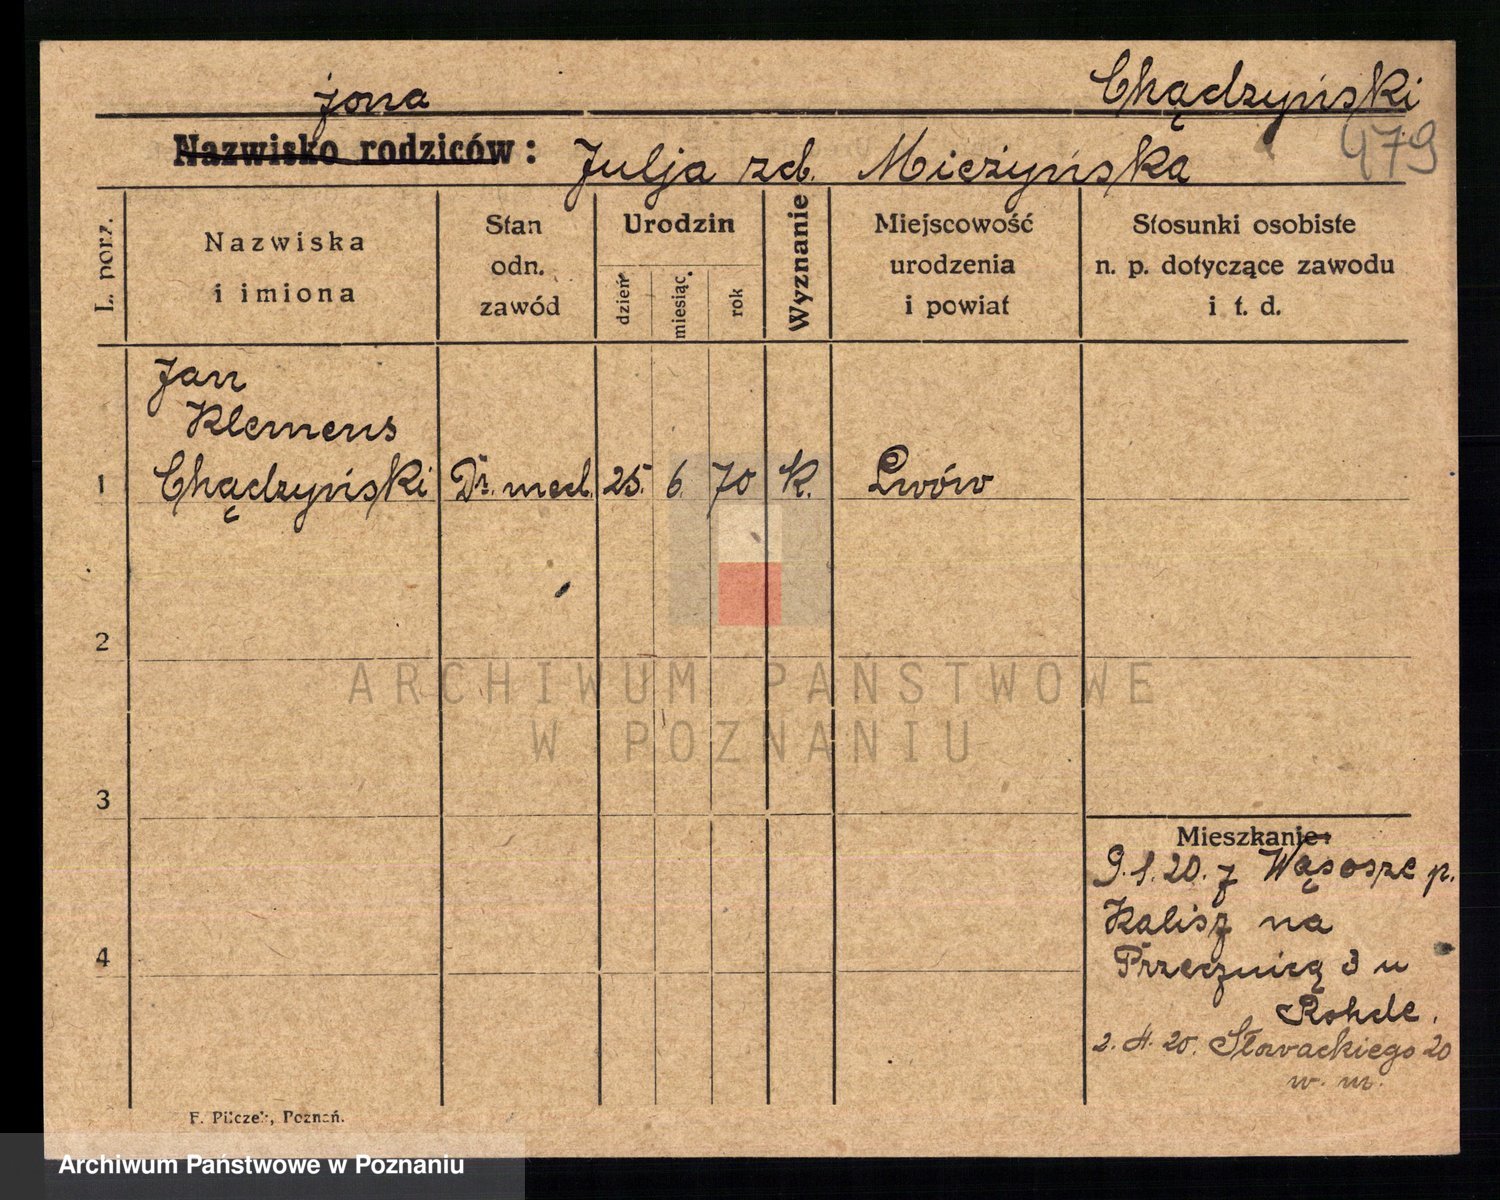 żona
Chądzyński
Nazwisko rodziców: Julja zd. Mieżyńska
479
L. porz.
Nazwiska
i imiona
Stan
odn.
zawód
Urodzin
dzień
miesiąc
rok
Wyznanie
Miejscowość
urodzenia
i powiat
Stosunki osobiste
n. p. dotyczące zawodu
i t. d.
Jan
Klemens
1 Chądzyński Dr. med. 25. 6. 70 K. Lwów
2
ARCHIWUM PAŃSTWOWE
W POZNANIU
3
Mieszkanie:
9.1.20. z Wąsosze p.
Kalisz na
4
Przecznicą 3 u
Rohde.
2. 4. 20. Słowackiego 20
w. m.
F. Pilczek, Poznań.
Archiwum Państwowe w Poznaniu